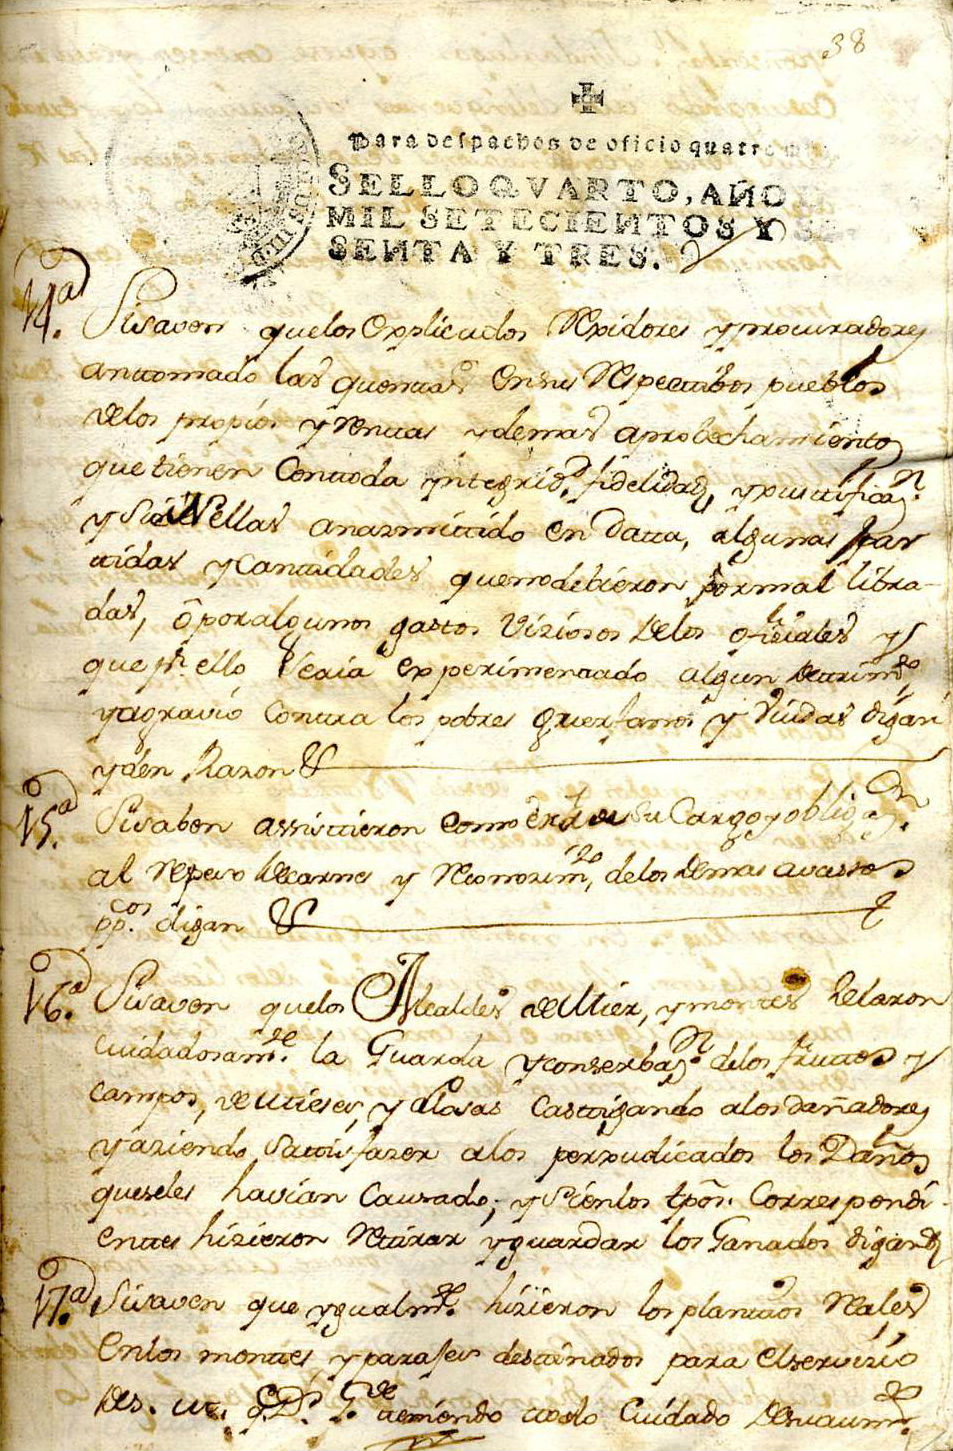 38
Para despachos de oficio quatro
SELLO QVARTO, AÑO
MIL SETECIENTOS Y SE-
SENTA Y TRES.
14ª
Sisaven quelos explicados Rexidores yprocuradores
antomado las quentas en sus Respectibos pueblos
delos propios yRentas ydemas aprobechamientos
que tienen Contoda yntegrid.d fidelidad, ypurificaz.n
y si en ellas anazmittido en Datta, algunas par
tidas yCantidades quenodebieron formal libra-
das, ô poralgunos gastos Viziosos delos ofiziales y
que pr. ello Veaia experimentado algun detrim.to
yagravio Contra los pobres guerfanos y Viudas digan
yden Razon
15ª
Sisaben assisttieron Como era de su Cargo y obligaz.n
al Repeso decarnes y Reconozim.to, delos demas avastos
pp.cos digan
16ª
Sisaven quelos Alcaldes de Mier, y montes Zelaron
cuidadosam.te la Guarda yconserbaz.n delos fruttos y
campos, de Mieses, y Rosas Casttigando alos dañadores
yaziendo Sattisfazer alos perxudicados los Daños
queseles havian Causado, y sienlos tpos. Correspondi-
enttes hizieron Retirar yguardar los Ganados digan
17ª
Sisaven que ygualm.te hizieron los planttios Reales
Enlos monttes, yparajes desttinados para elservizio
de S. M. q. D.s G.de teniendo todo Cuidado desuaum.to